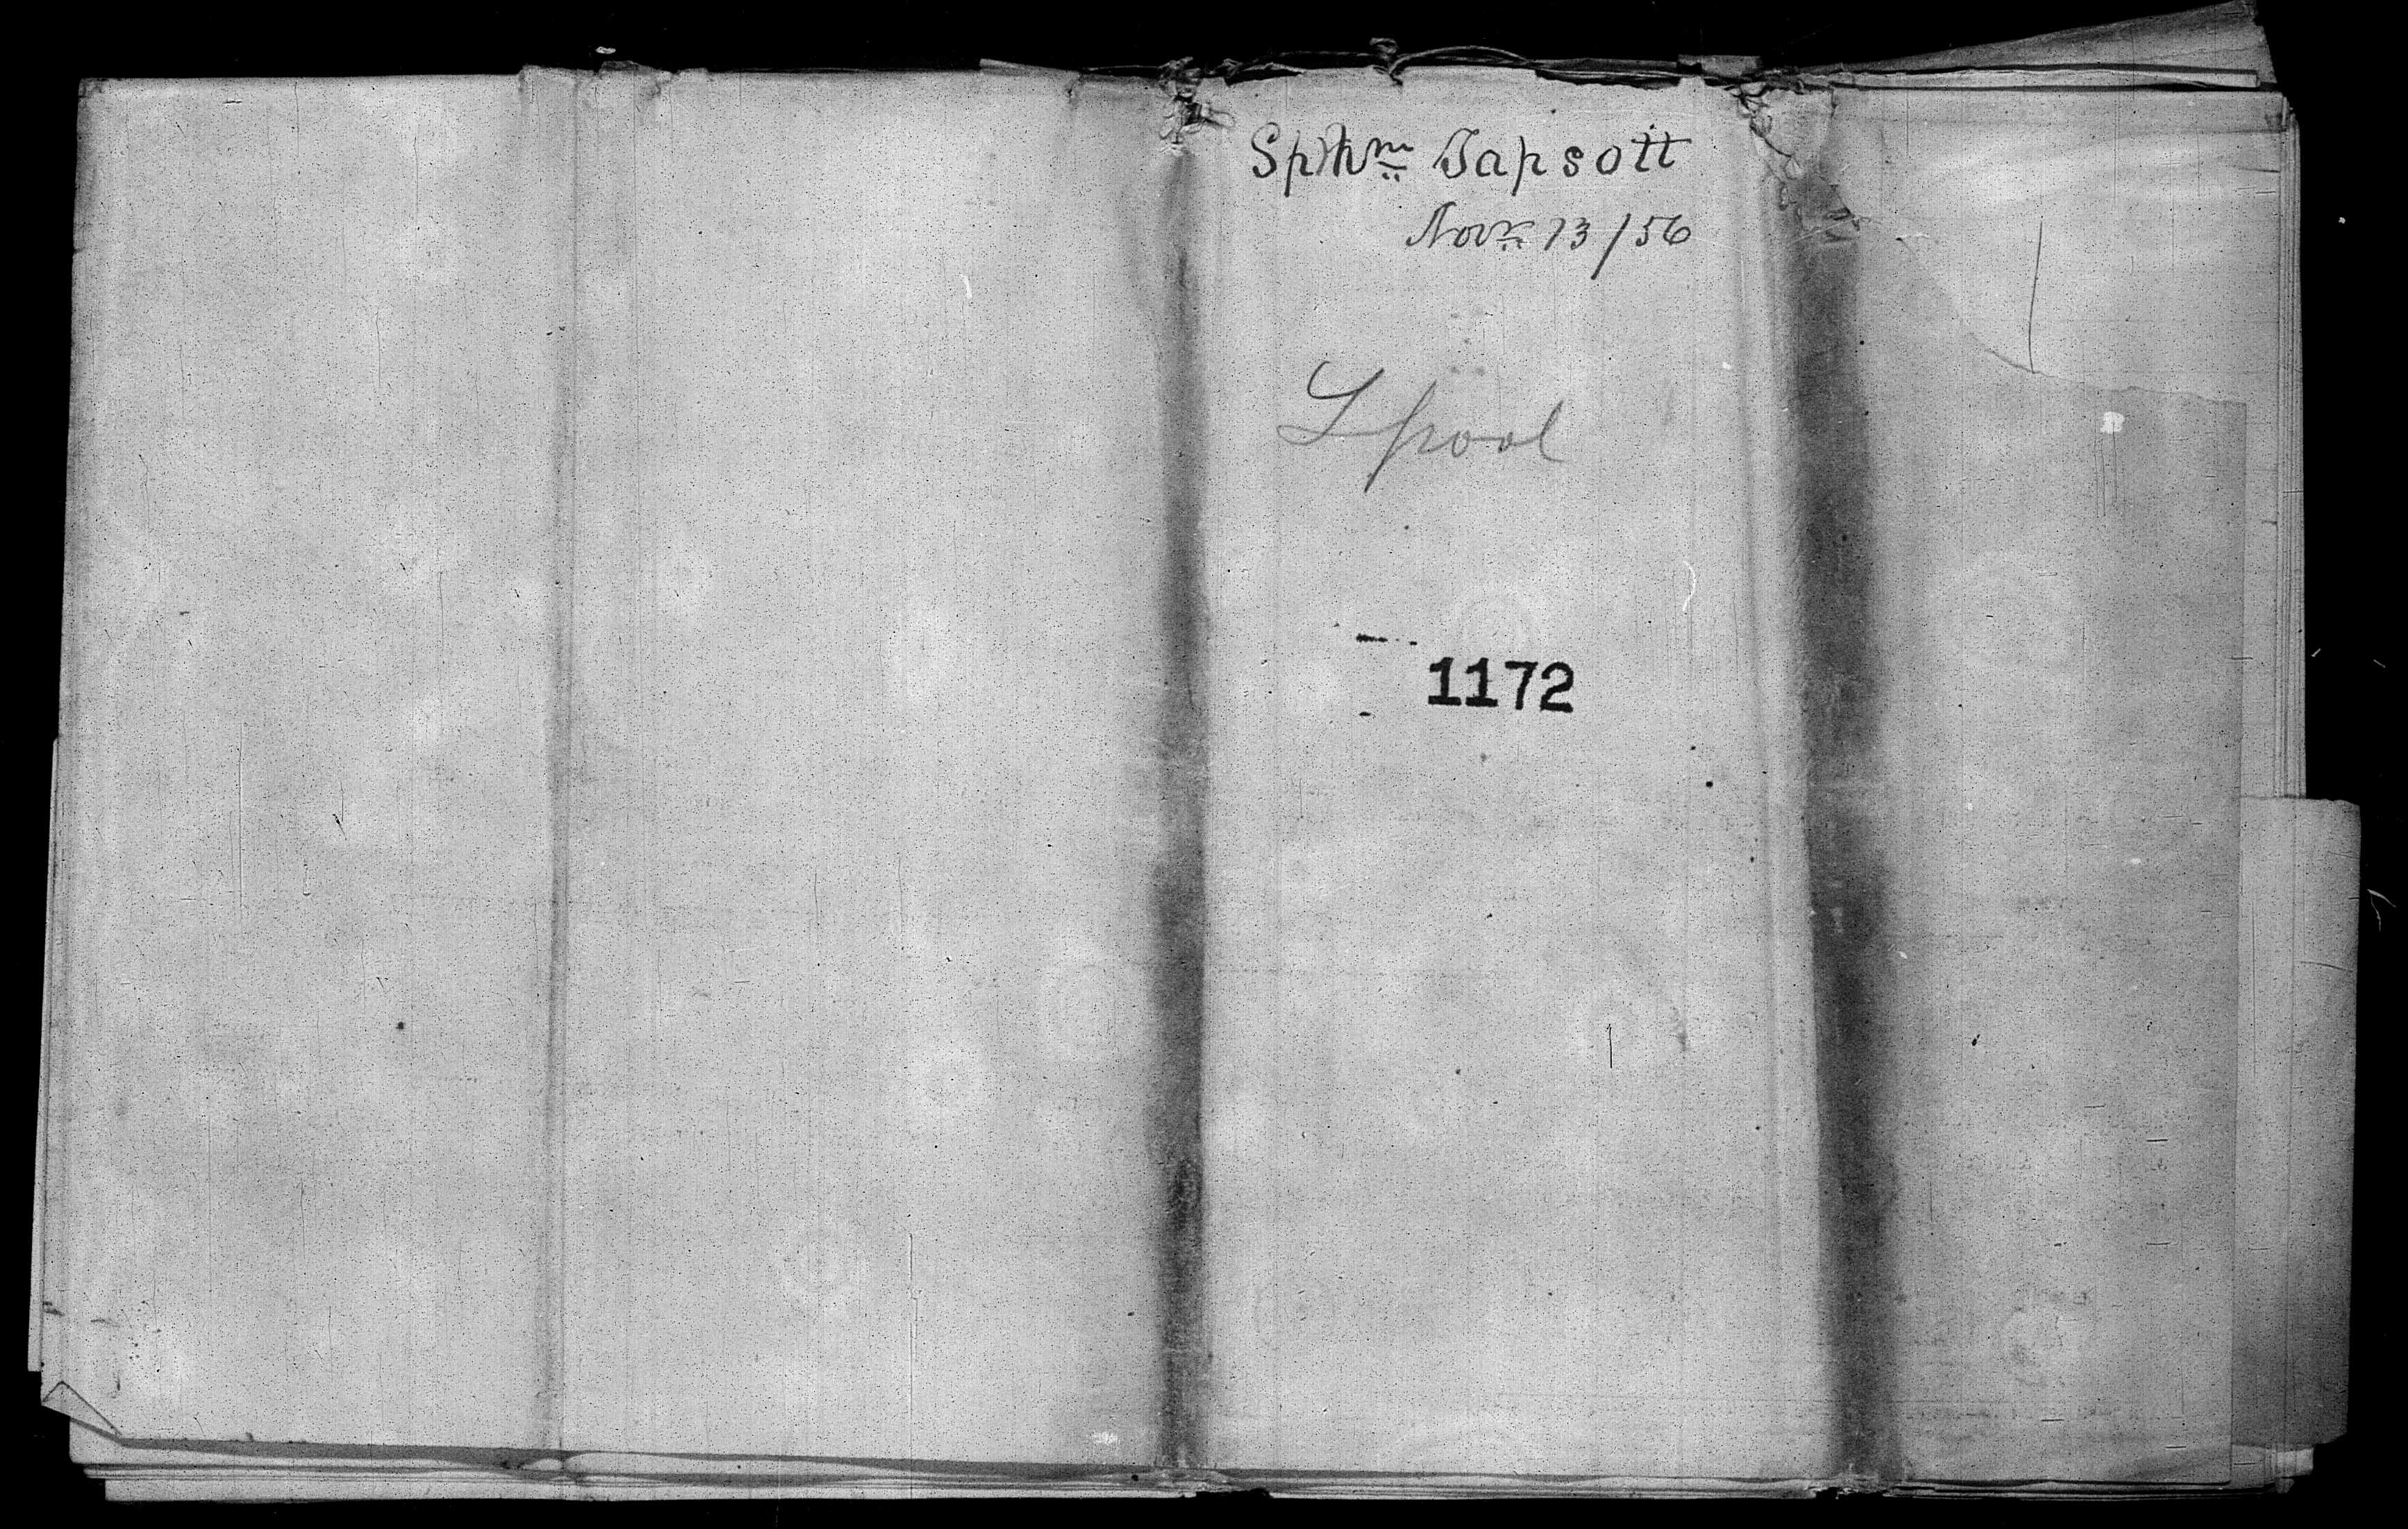 Sp Wm Tapsott
Novr 13/56
Lpool
1172